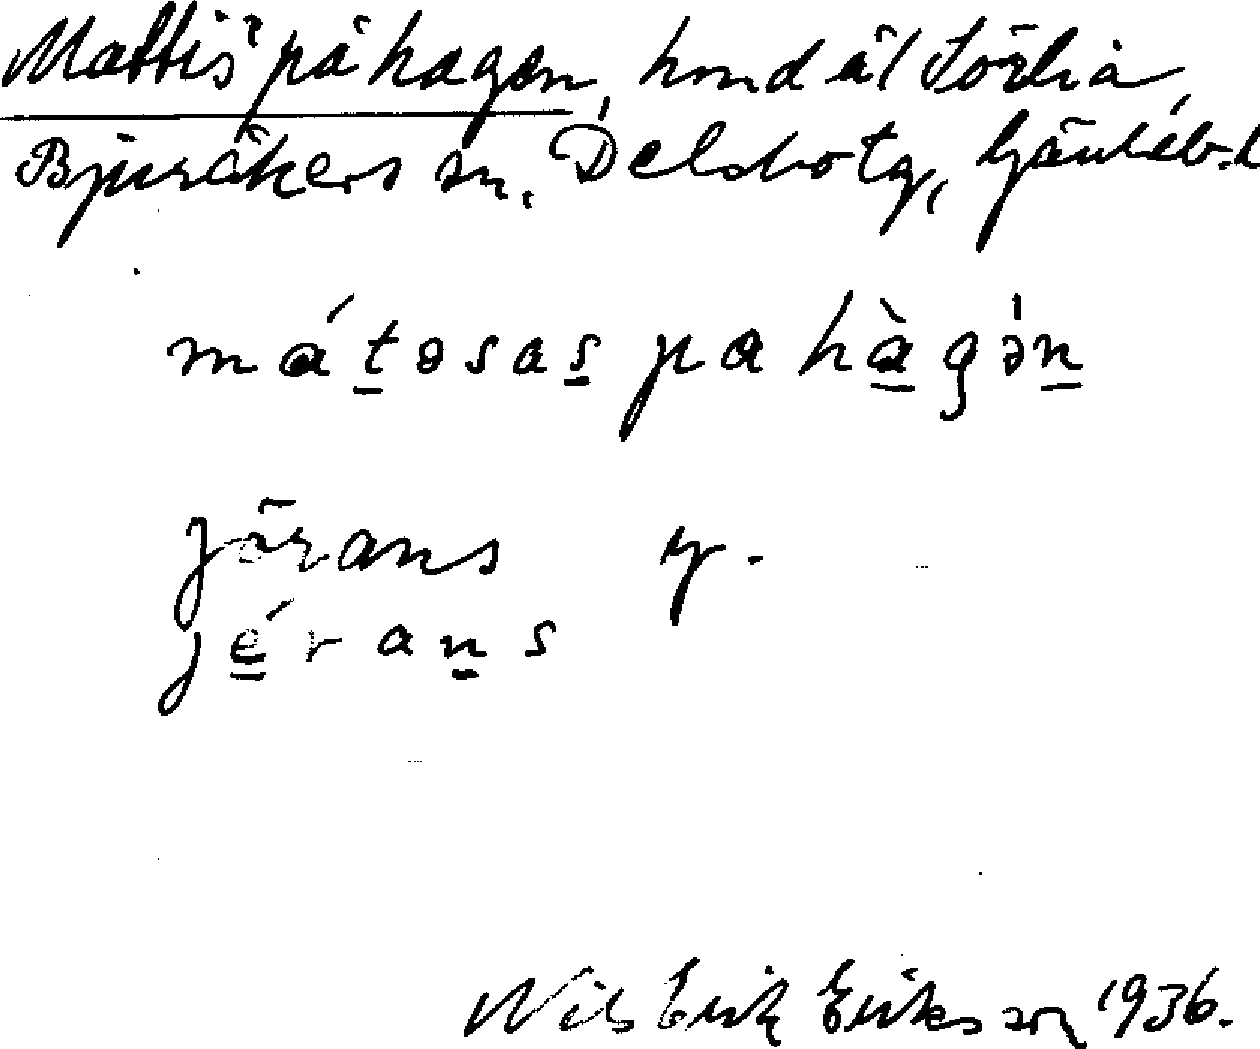 Mattis' på hagen, hmd äl Sörlia,
Bjuråkers sn. Delsbo tg, Gävleb. l
mátəsas pa hàgə́n
Jörans y.
jérans
Nils Erik Eriksson 1936.